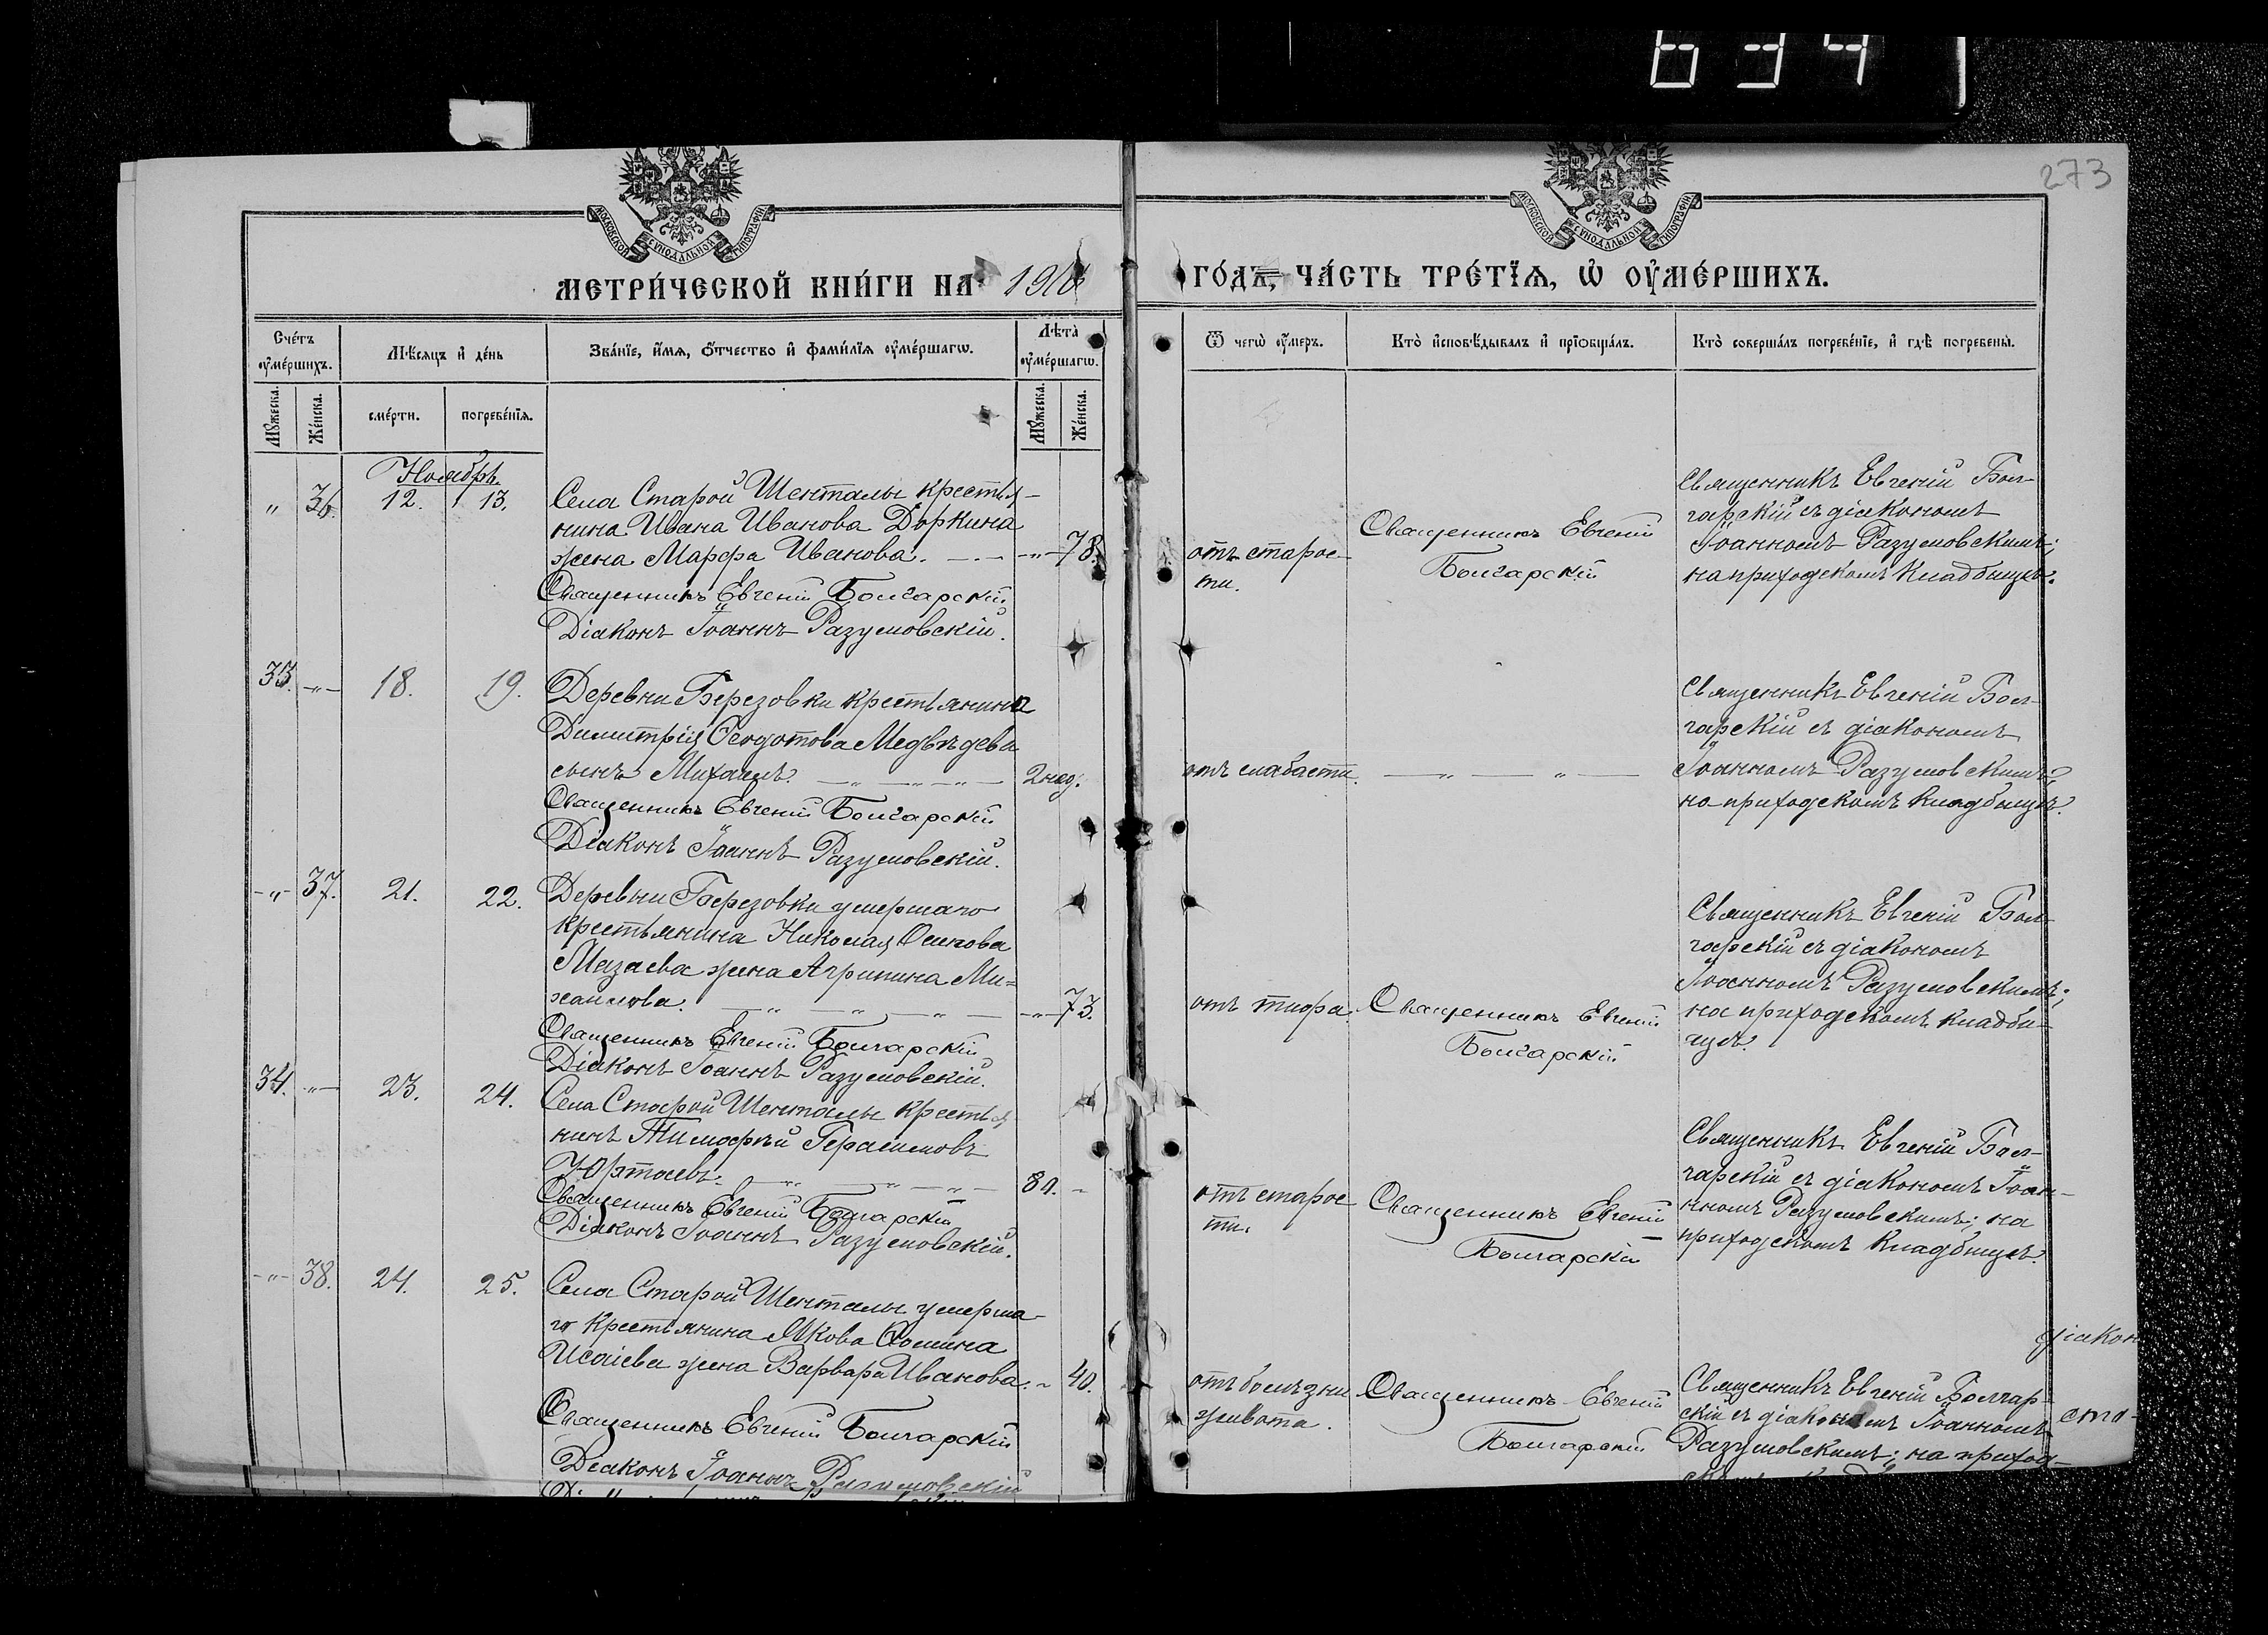 634
273
МОСКОВСКОЙ СѴНОДАЛЬНОЙ ТИПОГРАФІИ
МОСКОВСКОЙ СѴНОДАЛЬНОЙ ТИПОГРАФІИ
МЕТРИ́ЧЕСКОЙ КНИ́ГИ НА 1910
ГО́ДЪ, ЧА́СТЬ ТРЕ́ТІѦ, Ѡ҆ ОУ҆МЕ́РШИХЪ.
Сче́тъ оу҆ме́ршихъ.
Мꙋ́жеска.
Же́нска.
Мѣ́сѧцъ и҆ де́нь
сме́рти.
погребе́нїѧ.
Зва́нїе, и҆́мѧ, ѻ҆́тчество и҆ фами́лїѧ оу҆ме́ршагѡ.
Лѣ́та оу҆ме́ршагѡ.
Мꙋ́жеска.
Же́нска.
Ѿ чегѡ̀ оу҆́меръ.
Кто̀ и҆сповѣ́дывалъ и҆ прїѡбща́лъ.
Кто̀ соверша́лъ погребе́нїе, и҆ гдѣ̀ погребены̀.
Ноябрь.
" 36. 12. 13. Села Старой Шенталы крестья-
нина Ивана Иванова Доркина
жена Марфа Иванова. — " — 78.
Священникъ Евгеній Болгарскій
Діаконъ Іоаннъ Разумовскій.
отъ старос-
ти.
Священникъ Евгеній
Болгарскій
Священникъ Евгеній Бол-
гарскій съ діакономъ
Іоанномъ Разумовскимъ;
на приходскомъ кладбищѣ.
33. — " — 18. 19. Деревни Березовки крестьянина
Димитрія Ѳеодотова Медвѣдева
сынъ Михаилъ. — " — " — " — 2 нед.
Священникъ Евгеній Болгарскій
Діаконъ Іоаннъ Разумовскій.
отъ слабости. — " — " —
Священникъ Евгеній Бол-
гарскій съ діакономъ
Іоанномъ Разумовскимъ;
на приходскомъ кладбищѣ.
— " — 37. 21. 22. Деревни Березовки умершаго
крестьянина Николая Осипова
Мазаева жена Агрипина Ми=
хаилова. — " — " — " — " — 73.
Священникъ Евгеній Болгарскій
Діаконъ Іоаннъ Разумовскій.
отъ тифа.
Священникъ Евгеній
Болгарскій
Священникъ Евгеній Бол-
гарскій съ діакономъ
Іоанномъ Разумовскимъ;
на приходскомъ кладби-
щѣ.
34. — " — 23. 24. Села Старой Шенталы крестья
нинъ Тимофѣй Герасимовъ
Юртаевъ. — " — " — " — 80. -
Священникъ Евгеній Болгарскій
Діаконъ Іоаннъ Разумовскій.
отъ старос
ти.
Священникъ Евгеній
Болгарскій
Священникъ Евгеній Бол-
гарскій съ діакономъ Іоан-
номъ Разумовскимъ; на
приходскомъ кладбищѣ.
— " — 38. 24. 25. Села Старой Шенталы умерша-
го крестьянина Якова Ѳомина
Исаіева жена Варвара Иванова. - 40.
Священникъ Евгеній Болгарскій
Діаконъ Іоаннъ Разумовскій
отъ болѣзни
живота.
Священникъ Евгеній
Болгарскій
Священникъ Евгеній Болгар-
скій съ діакономъ Іоанномъ
Разумовскимъ; на приход-
діакон